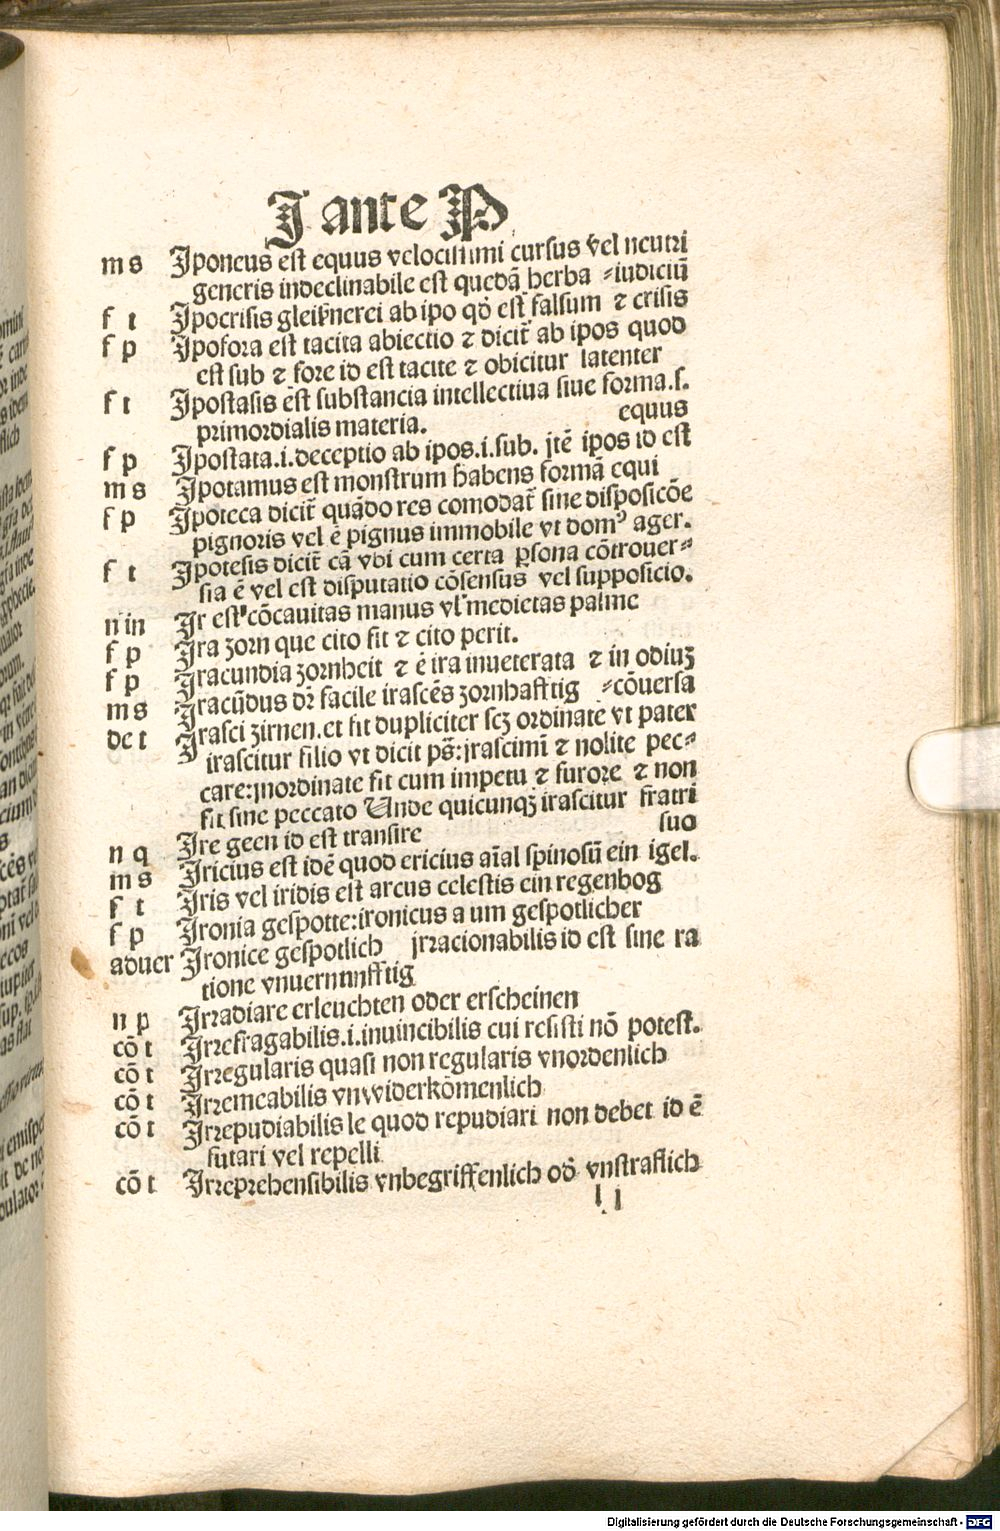 J ante P
m s Jponeus est equus velocissimi cursus vel neutri
generis indeclinabile est quedā herba ⸗iudiciū
f t Jpocrisis gleißnerei ab ipo qđ est falsum ⁊ crisis
f p Jpofora est tacita abiectio ⁊ dicit̄ ab ipos quod
est sub ⁊ fore id est tacite ⁊ obicitur latenter
f t Jpostasis est substancia intellectiua siue forma.s.
primordialis materia. equus
f p Jpostata.i.deceptio ab ipos.i.sub. jtē ipos id est
m s Jpotamus est monstrum habens formā equi
f p Jpoteca dicit̄ quādo res comodat̄ sine disposicōe
pignoris vel ē pignus immobile vt domꝰ ager.
f t Jpotesis dicit̄ cā vbi cum certa ꝑsona cōtrouer⸗
sia ē vel est disputatio cōsensus vel supposicio.
n in Jr est cōcauitas manus vl' medietas palme
f p Jra zorn que cito fit ⁊ cito perit.
f p Jracundia zornheit ⁊ ē ira inueterata ⁊ in odiuꝫ
m s Jracūdus dr̄ facile irascēs zornhafftig ⸗cōuersa
de t Jrasci zirnen.et fit dupliciter scꝫ ordinate vt pater
irascitur filio vt dicit ps̄:jrascimī ⁊ nolite pec⸗
care:jnordinate fit cum impetu ⁊ furore ⁊ non
fit sine peccato Unde quicunqꝫ irascitur fratri
n q Jre geen id est transire suo
m s Jricius est idē quod ericius aīal spinosū ein igel.
f t Jris vel iridis est arcus celestis ein regenbog
f p Jronia gespotte:ironicus a um gespotlicher
aduer Jronice gespotlich jrracionabilis id est sine ra
tione vnuernunfftig
n p Jrradiare erleuchten oder erscheinen
cō t Jrrefragabilis.i.inuincibilis cui resisti nō potest.
cō t Jrregularis quasi non regularis vnordenlich
cō t Jrremeabilis vnwiderkōmenlich
cō t Jrrepudiabilis le quod repudiari non debet id ē
futari vel repelli
cō t Jrreprehensibilis vnbegriffenlich ođ vnstraflich
l j
Digitalisierung gefördert durch die Deutsche Forschungsgemeinschaft - DFG